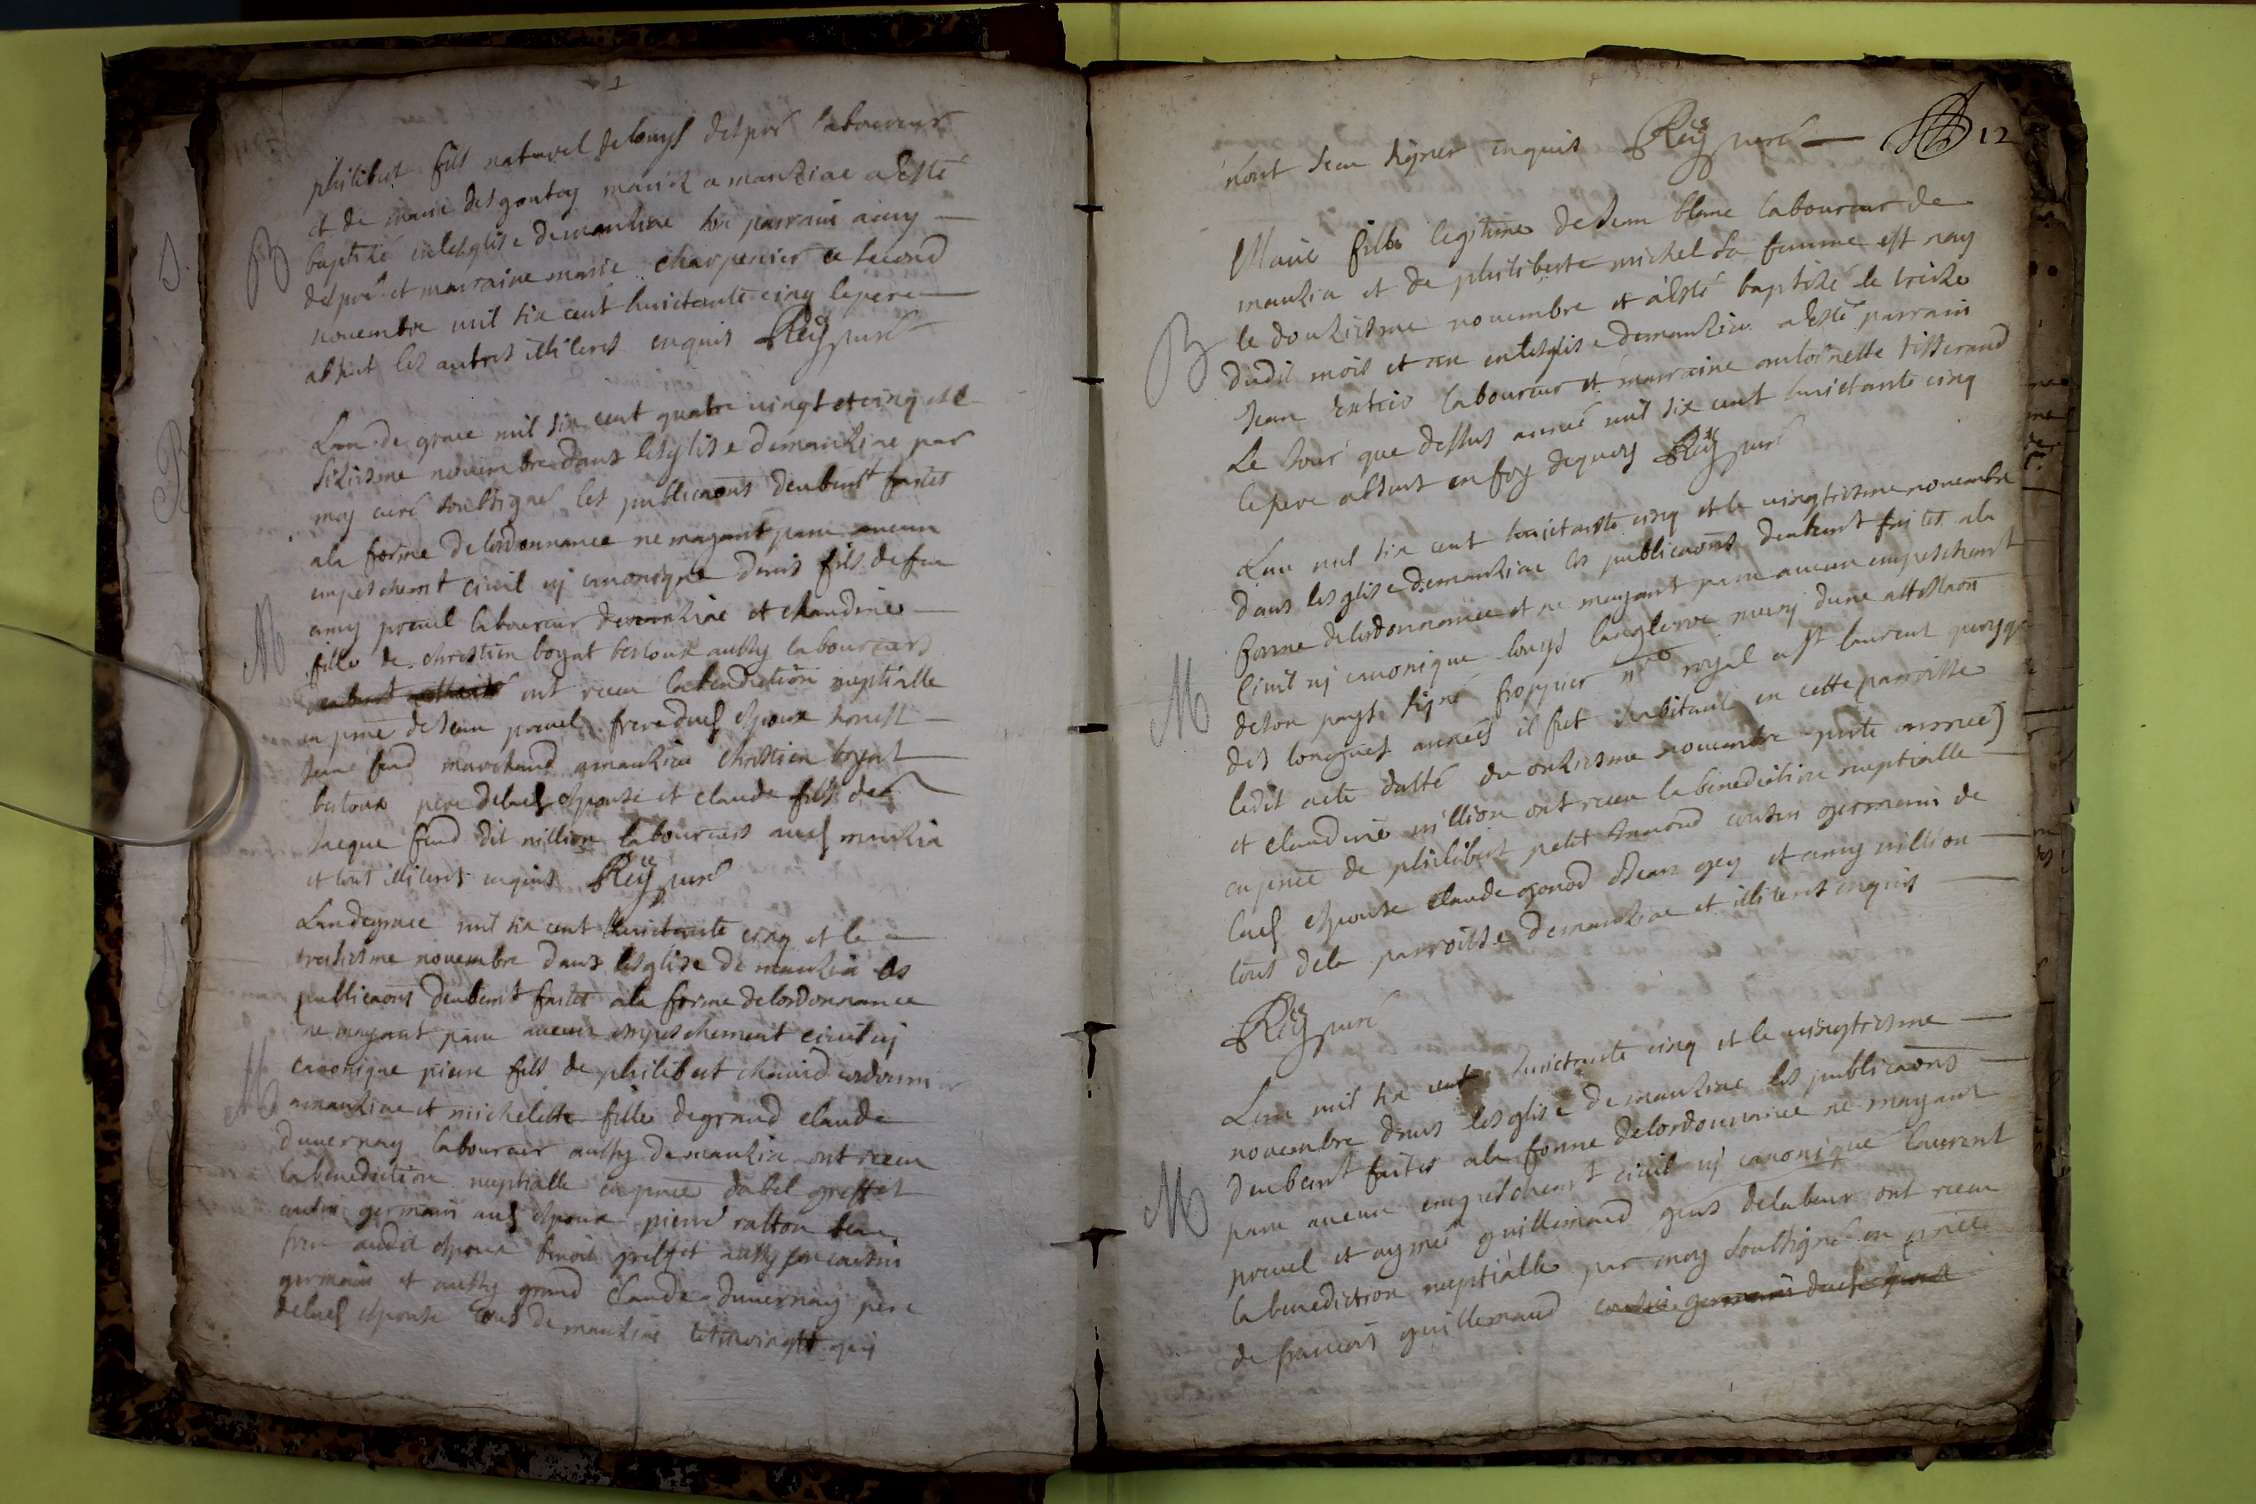 philibert fils naturel de louys despré laboureur
et de marie desgouttes mariez a manziac a Esté
baptizé en lesglise de manziac son parrain amy
despré et marraine marie charpentier ce second
novembre mil six cent huictante cinq le pere
absent les autres illiteres enquis Rey curé
Lan de grace mil six cent quatre vingt et cinq et le
sixiesme novembre dans lesglise de manziac par
moy curé soubsigné les publicaons deubemt faites
a la forme de lordonnance ne mayant paru aucun
empeschemt civil ny canonique denis fils de feu
amy provel laboureur de manziac et claudine
fille de christien boyat bertoux aussy laboureurs
ont receu la benediction nuptialle
en pnce de Jean provel frere dud espoux honest
Jean feud marchand a manziac christien boyat
bertoux pere de lad espouse et claude fils de
Jacque feud dit million laboureurs aud manzia
et tout illiteres enquis Rey curé
Lan de grace mil six cent huictante cinq et le
treiziesme novembre dans lesglise de manzia les
publicaons deubemt faites a la forme de lordonnance
ne mayant paru aucun empeschement civil ny
canonique pierre fils de philibert chanard cordonnier
a manziac et michelette fille de grand claude
duvernay laboureur aussy de manzia ont receu
la benediction nuptialle en pnce dabel greffet
cousin germain aud espoux pierre ratton beau
frere audit espoux benoit greffet aussy son cousin
germain et aussy grand claude duvernay pere
de lad espouse tous de manziac tesmoingts qui
nont sceu signer enquis Rey curé 12
Marie fille legitime de Jean blanc laboureur de
manzia et de philiberte michel sa femme est nay
le douziesme novembre et a Esté baptizé le treize
dudit mois et an en lesglise de manzia a Esté parrain
Jean laboureur et marraine antoinette tisserand
Le Jour que dessus année mil six cent huictante cinq
le pere absent en foy de quoy Rey curé
Lan mil six cent huictante cinq et le vingtiesme novembre
dans lesglise de manziac les publicaons deubemt faites a la
forme de lordonnance et ne mayant paru aucun empeschemt
civil ny canonique louys muny dune attestaon
de son pays signé froppier nre royal a st laurent
des longues années il fut habitant en cette parroisse
ledit acte datté du onziesme novembre pnte année)
et claudine million ont receu la benediction nuptialle
en pnce de philibert petit cousin germain de
lad espouse claude gonod Jean gey et amy million
tous de la parroisse de manziac et illiteres enquis
Rey curé
Lan mil six cent huictante cinq et le vingtiesme
novembre dans lesglise de manziac les publicaons
deubemt faites a la forme de lordonnance ne mayant
paru aucun empeschemt civil ny canonique laurent
provel et aymée guillemaud gens de labeur ont receu
la benediction nuptialle par moy soubsigné en pnce
de francois guillemaud cousin germain dud espoux
B
M
M
B
M
M